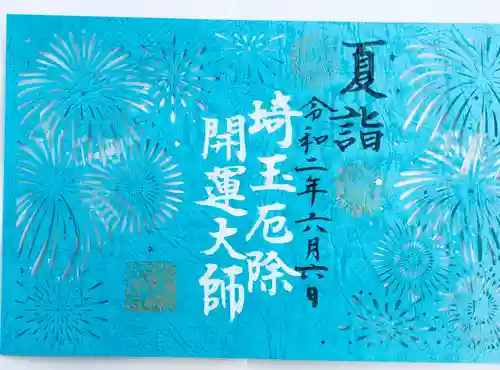 夏詣
令和二年六月六日
埼玉厄除
開運大師